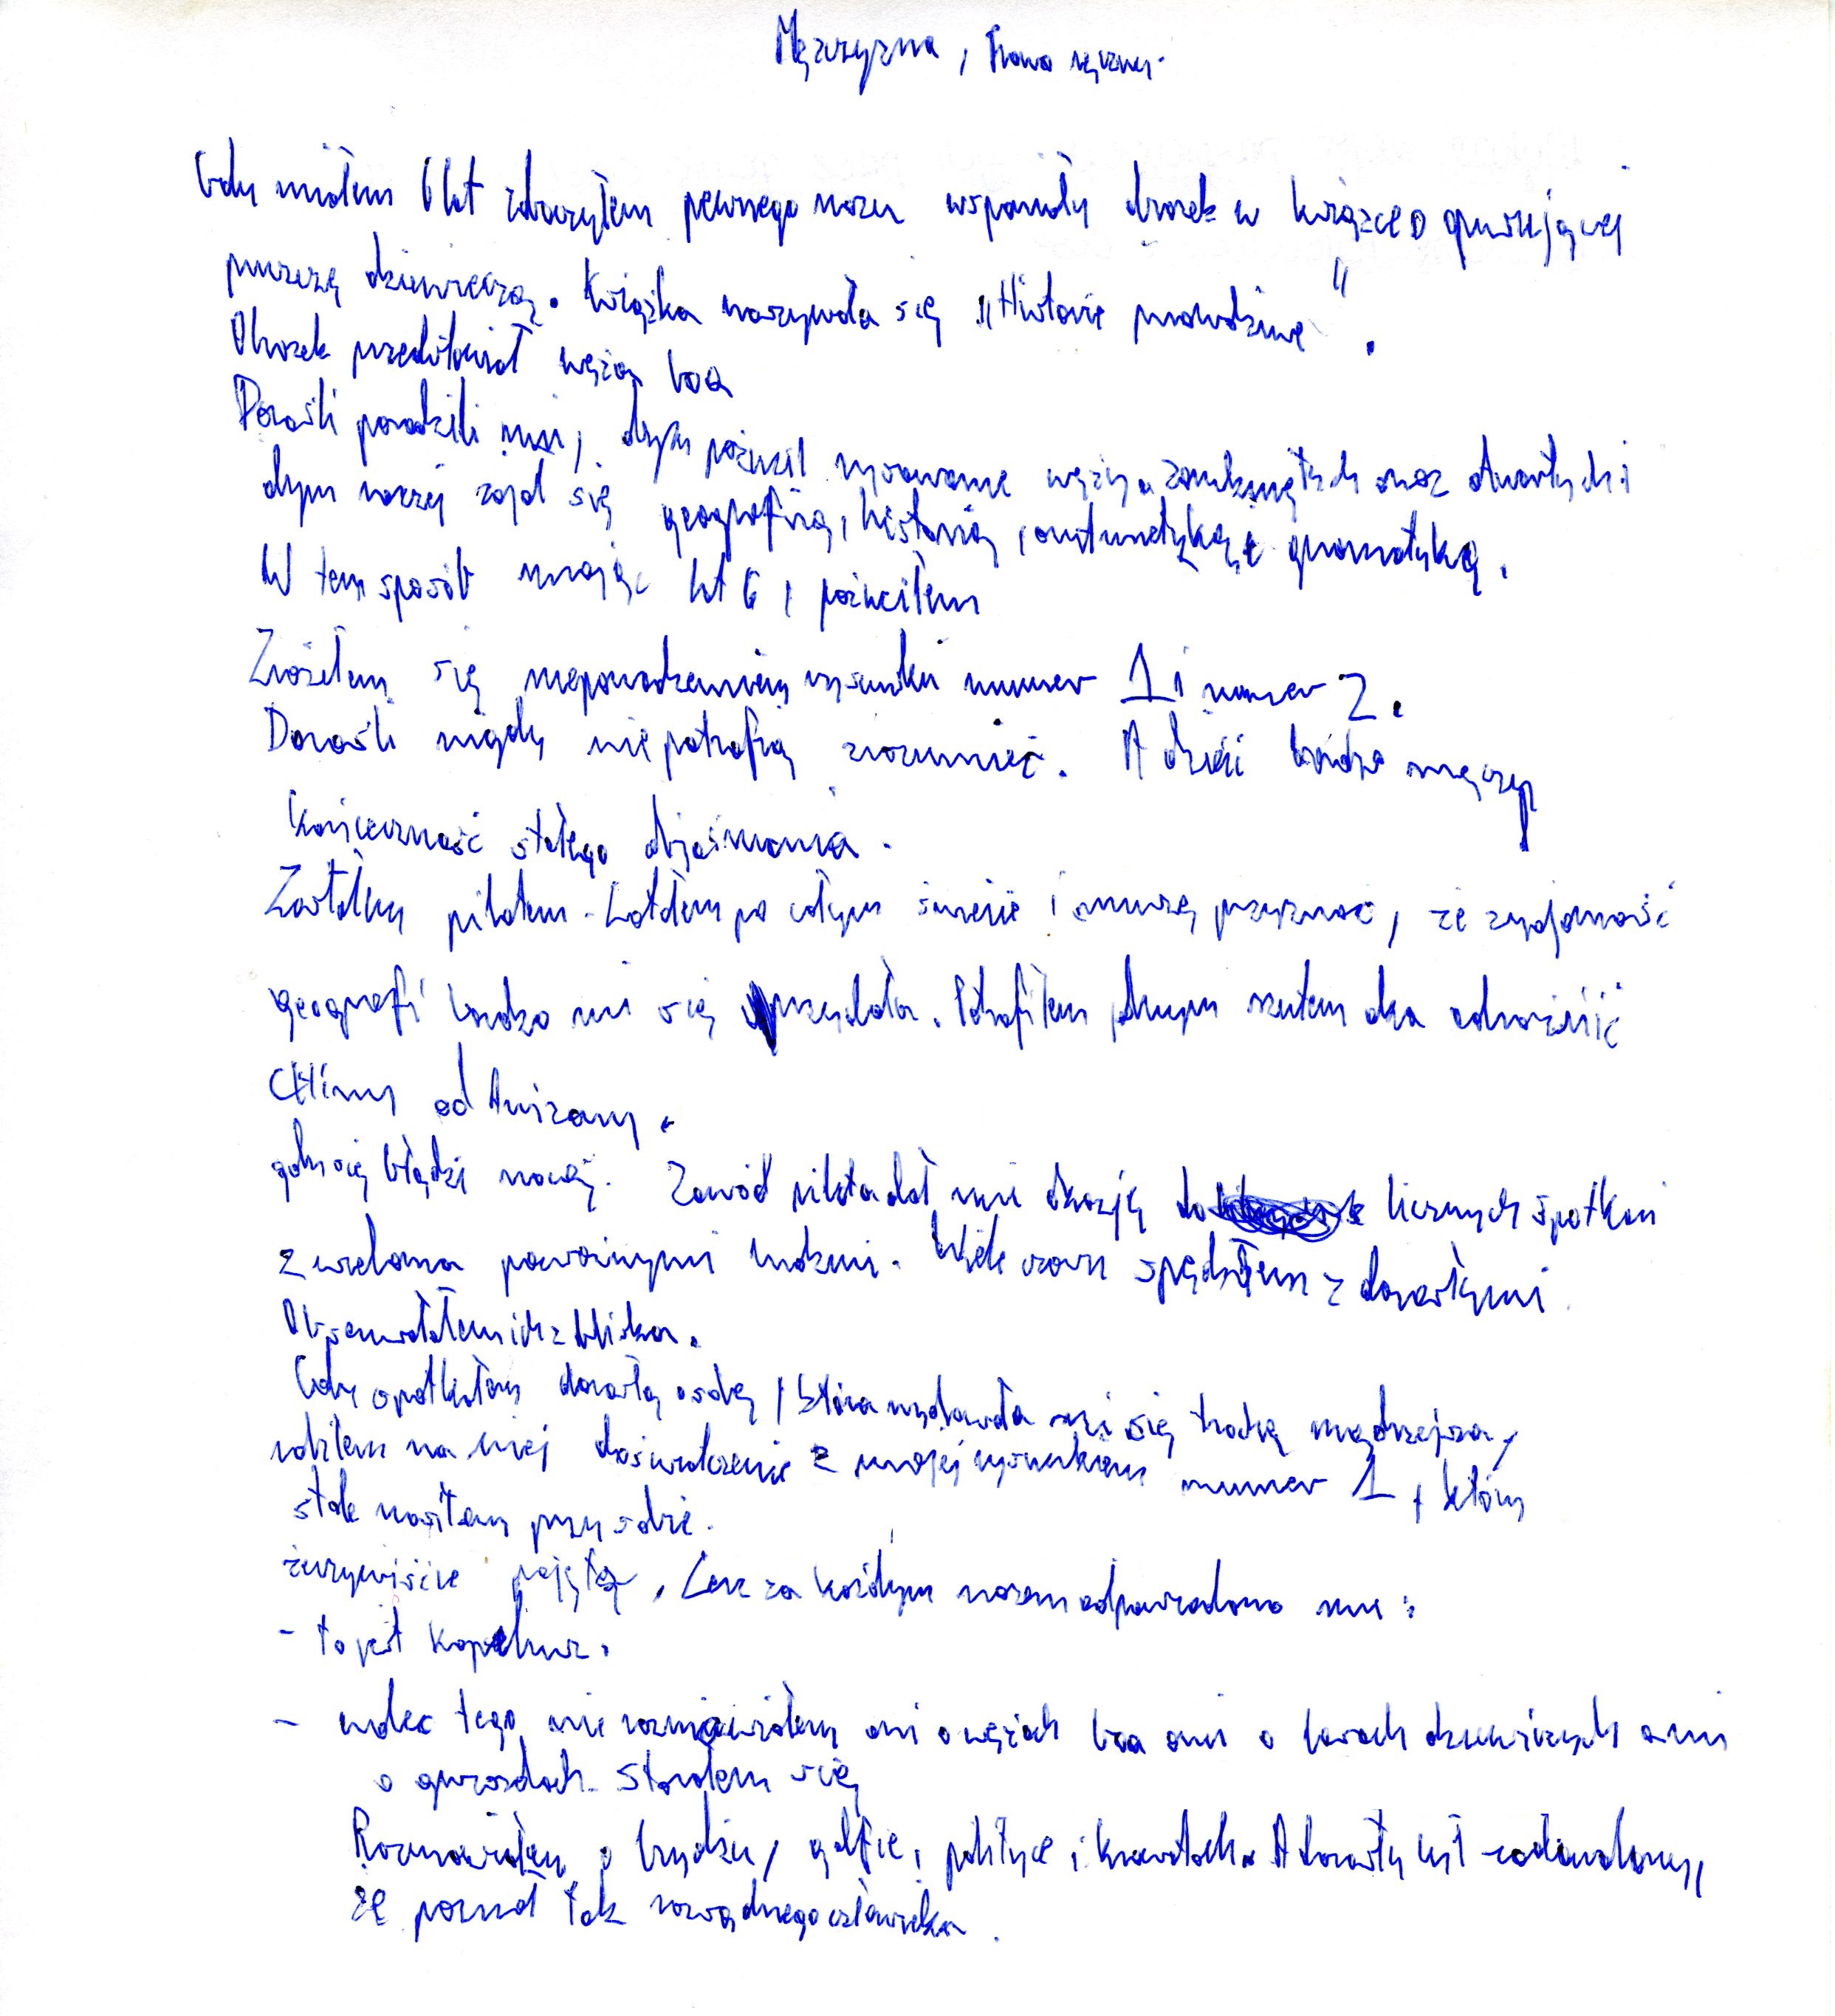 Mężczyzna, Prawo ręczny.
Gdy miałem 6 lat zobaczyłem pewnego razu wspaniały obrazek w książce opisującej
puszczę dziewiczą. Książka nazywała się "Historie prawdziwe".
Obrazek przedstawiał węża boa
Dorośli poradzili mi, abym porzucił rysowanie węży zamkniętych oraz otwartych i
abym raczej zajął się geografią, historią, arytmetyką i gramatyką.
W ten sposób mając lat 6, porzuciłem
Zraziłem się niepowodzeniem rysunku numer 1 i numer 2.
Dorośli nigdy nie potrafią zrozumieć. A dzieci bardzo męczy
konieczność stałego objaśniania.
Zostałem pilotem. Latałem po całym świecie i muszę przyznać, że znajomość
geografi bardzo mi się przydała. Potrafiłem jednym rzutem oka odróżnić
CHiny od Arizony.
gdy się błądzi nocą. Zawód pilota dał mi okazję do licznych spotkań
z wieloma poważnymi ludźmi. Wiele czasu spędziłem z dorosłymi.
Obserwowałem ich z bliska.
Gdy spotkałem dorosłą osobę, która wydawała mi się trochę mądrzejsza,
robiłem na niej doświadczenie z moim rysunkiem numer 1, który
stale nosiłem przy sobie.
rzeczywiście pojętą. Lecz za każdym razem odpowiadano mi:
- to jest kapelusz.
- wobec tego nie rozmawiałem ani o wężach boa ani o lasach dziewiczych ani
o gwiazdach. Starałem się
Rozmawiałem o brydżu, golfie, polityce i krawatach. A dorosły był zadowolony,
że poznał tak rozsądnego człowieka.